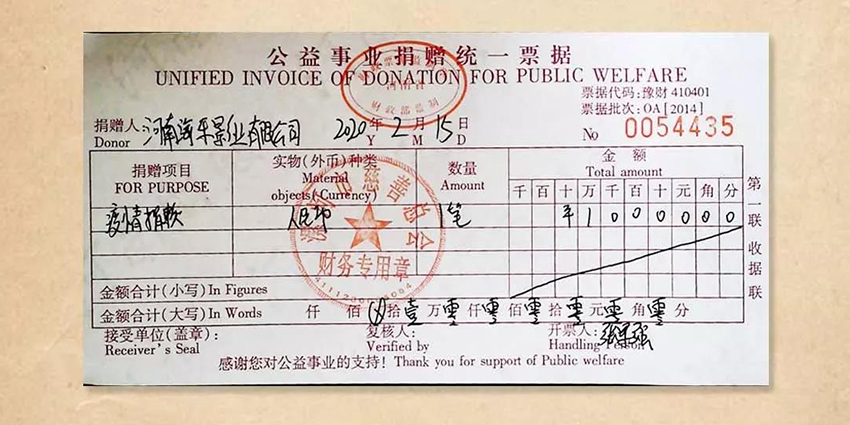 公益事业捐赠统一票据
UNIFIED INVOICE OF DONATION FOR PUBLIC WELFARE
票据代码:豫财 410401
票据批次:OA[2014]
捐赠人 河南海平景业有限公司 2020年 2月 15日 No 0054435
Donor Y M D
捐赠项目 实物(外币)种类 数量 金额
FOR PURPOSE Material objects(Currency) Amount Total amount
千 百 十 万 千 百 十 元 角 分
疫情捐款 人民币 1笔 ¥ 1 0 0 0 0 0 0
金额合计(小写)In Figures
金额合计(大写)In Words 仟 佰 拾 壹 万 零 仟 零 佰 零 拾 零 元 零 角 零 分
接受单位(盖章): 复核人: 开票人:
Receiver's Seal Verified by Handling Person
感谢您对公益事业的支持!Thank you for support of Public welfare
第一联 收据联
财政部监制
慈善总会
财务专用章